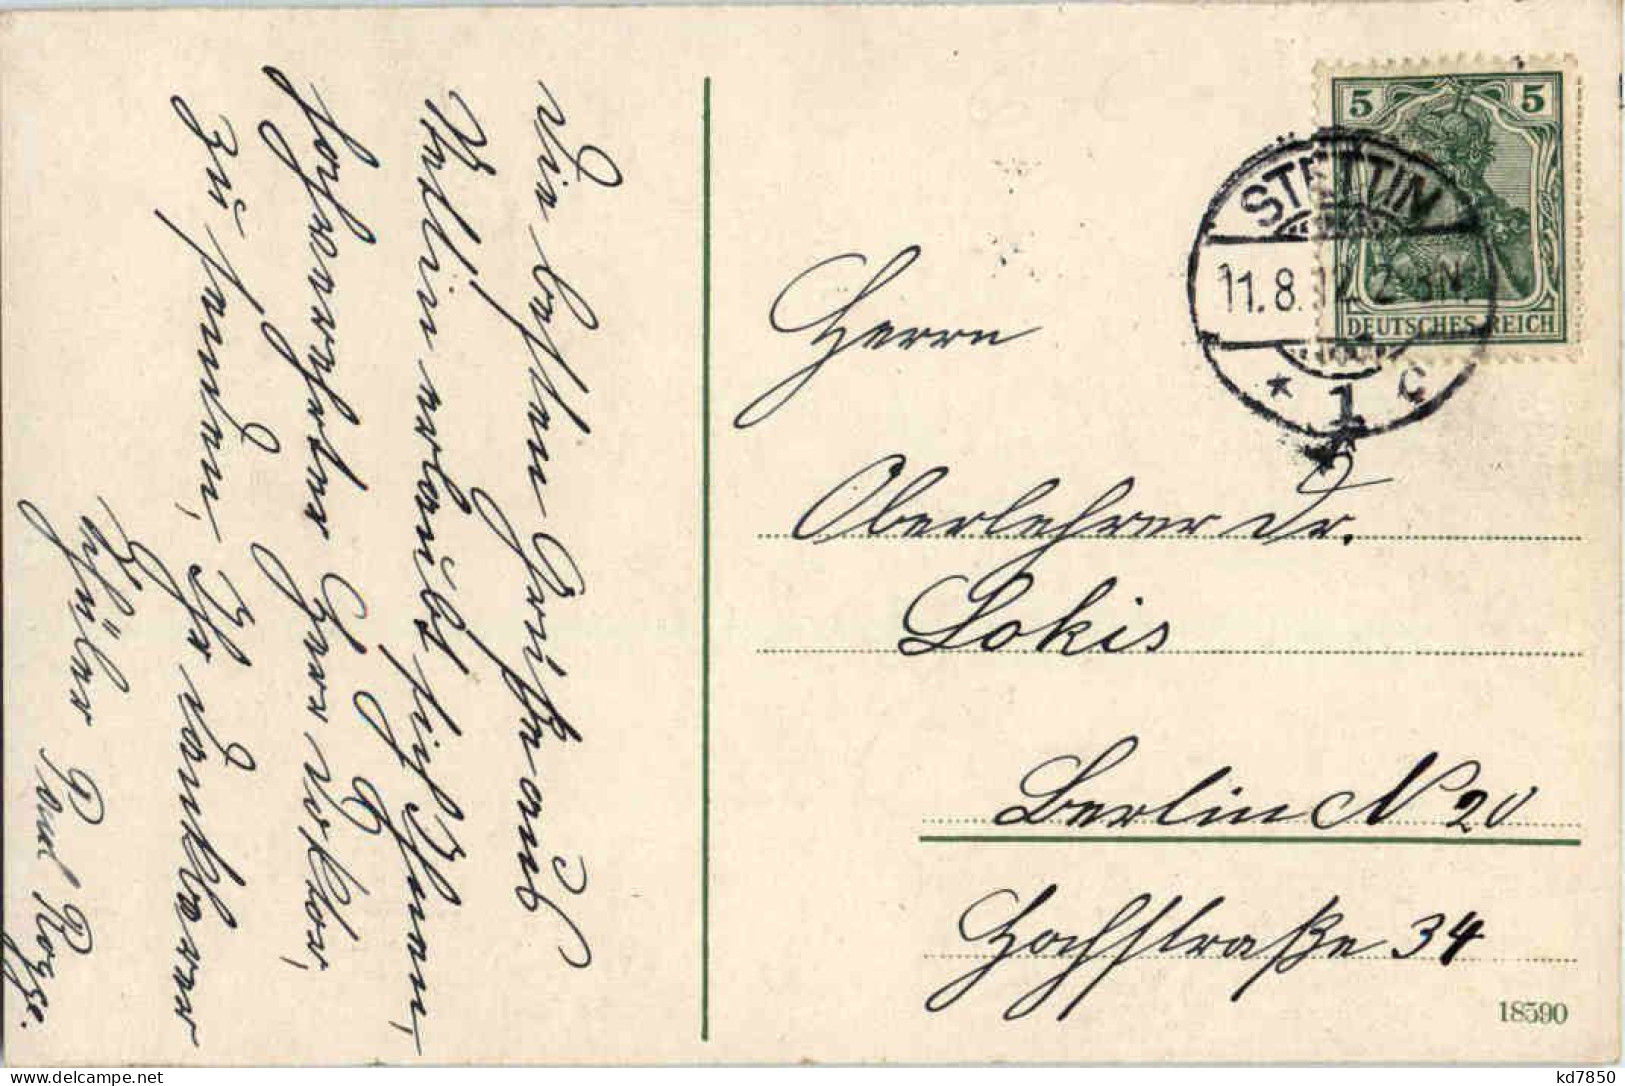 Die besten Grüße aus
Stettin erlaubt sich Ihnen,
sehr verehrter Herr Doktor,
zu senden, Ihr dankbarer
Schüler Paul Rogge.
5 5
DEUTSCHES REICH
STETTIN
11.8.12. 2-3N.
* 1 c
Herrn
Oberlehrer Dr.
Lokis
Berlin N 20
Hochstraße 34
18590
kd7850